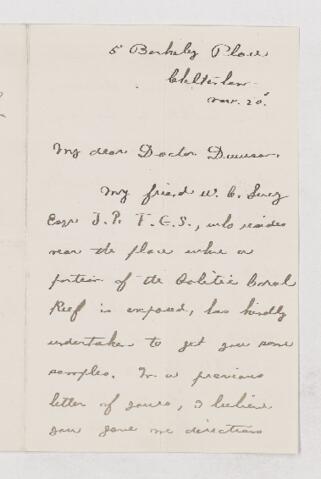 5 Berkeley Place
Cheltenham
Nov. 20.
My dear Doctor Duncan.
My friend W. C. Lucy
Esqre J. P. F. G. S., who resides
near the place where a
portion of the Oolitic Coral
Reef is exposed, has kindly
undertaken to get you some
samples. In a previous
letter of yours, I believe
you gave me directions